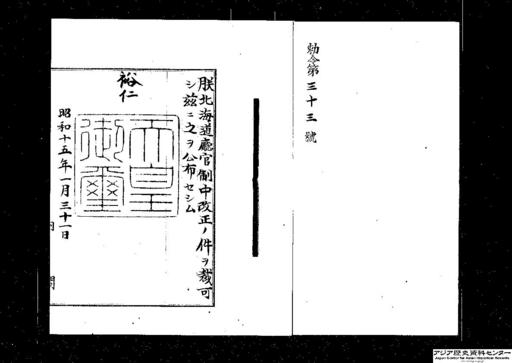 勅令第三十三號
朕北海道廳官制中改正ノ件ヲ裁可
シ茲ニ之ヲ公布セシム
裕仁
天皇
御璽
昭和十五年一月三十一日
内 閣
アジア歴史資料センター
Japan Center for Asian Historical Records